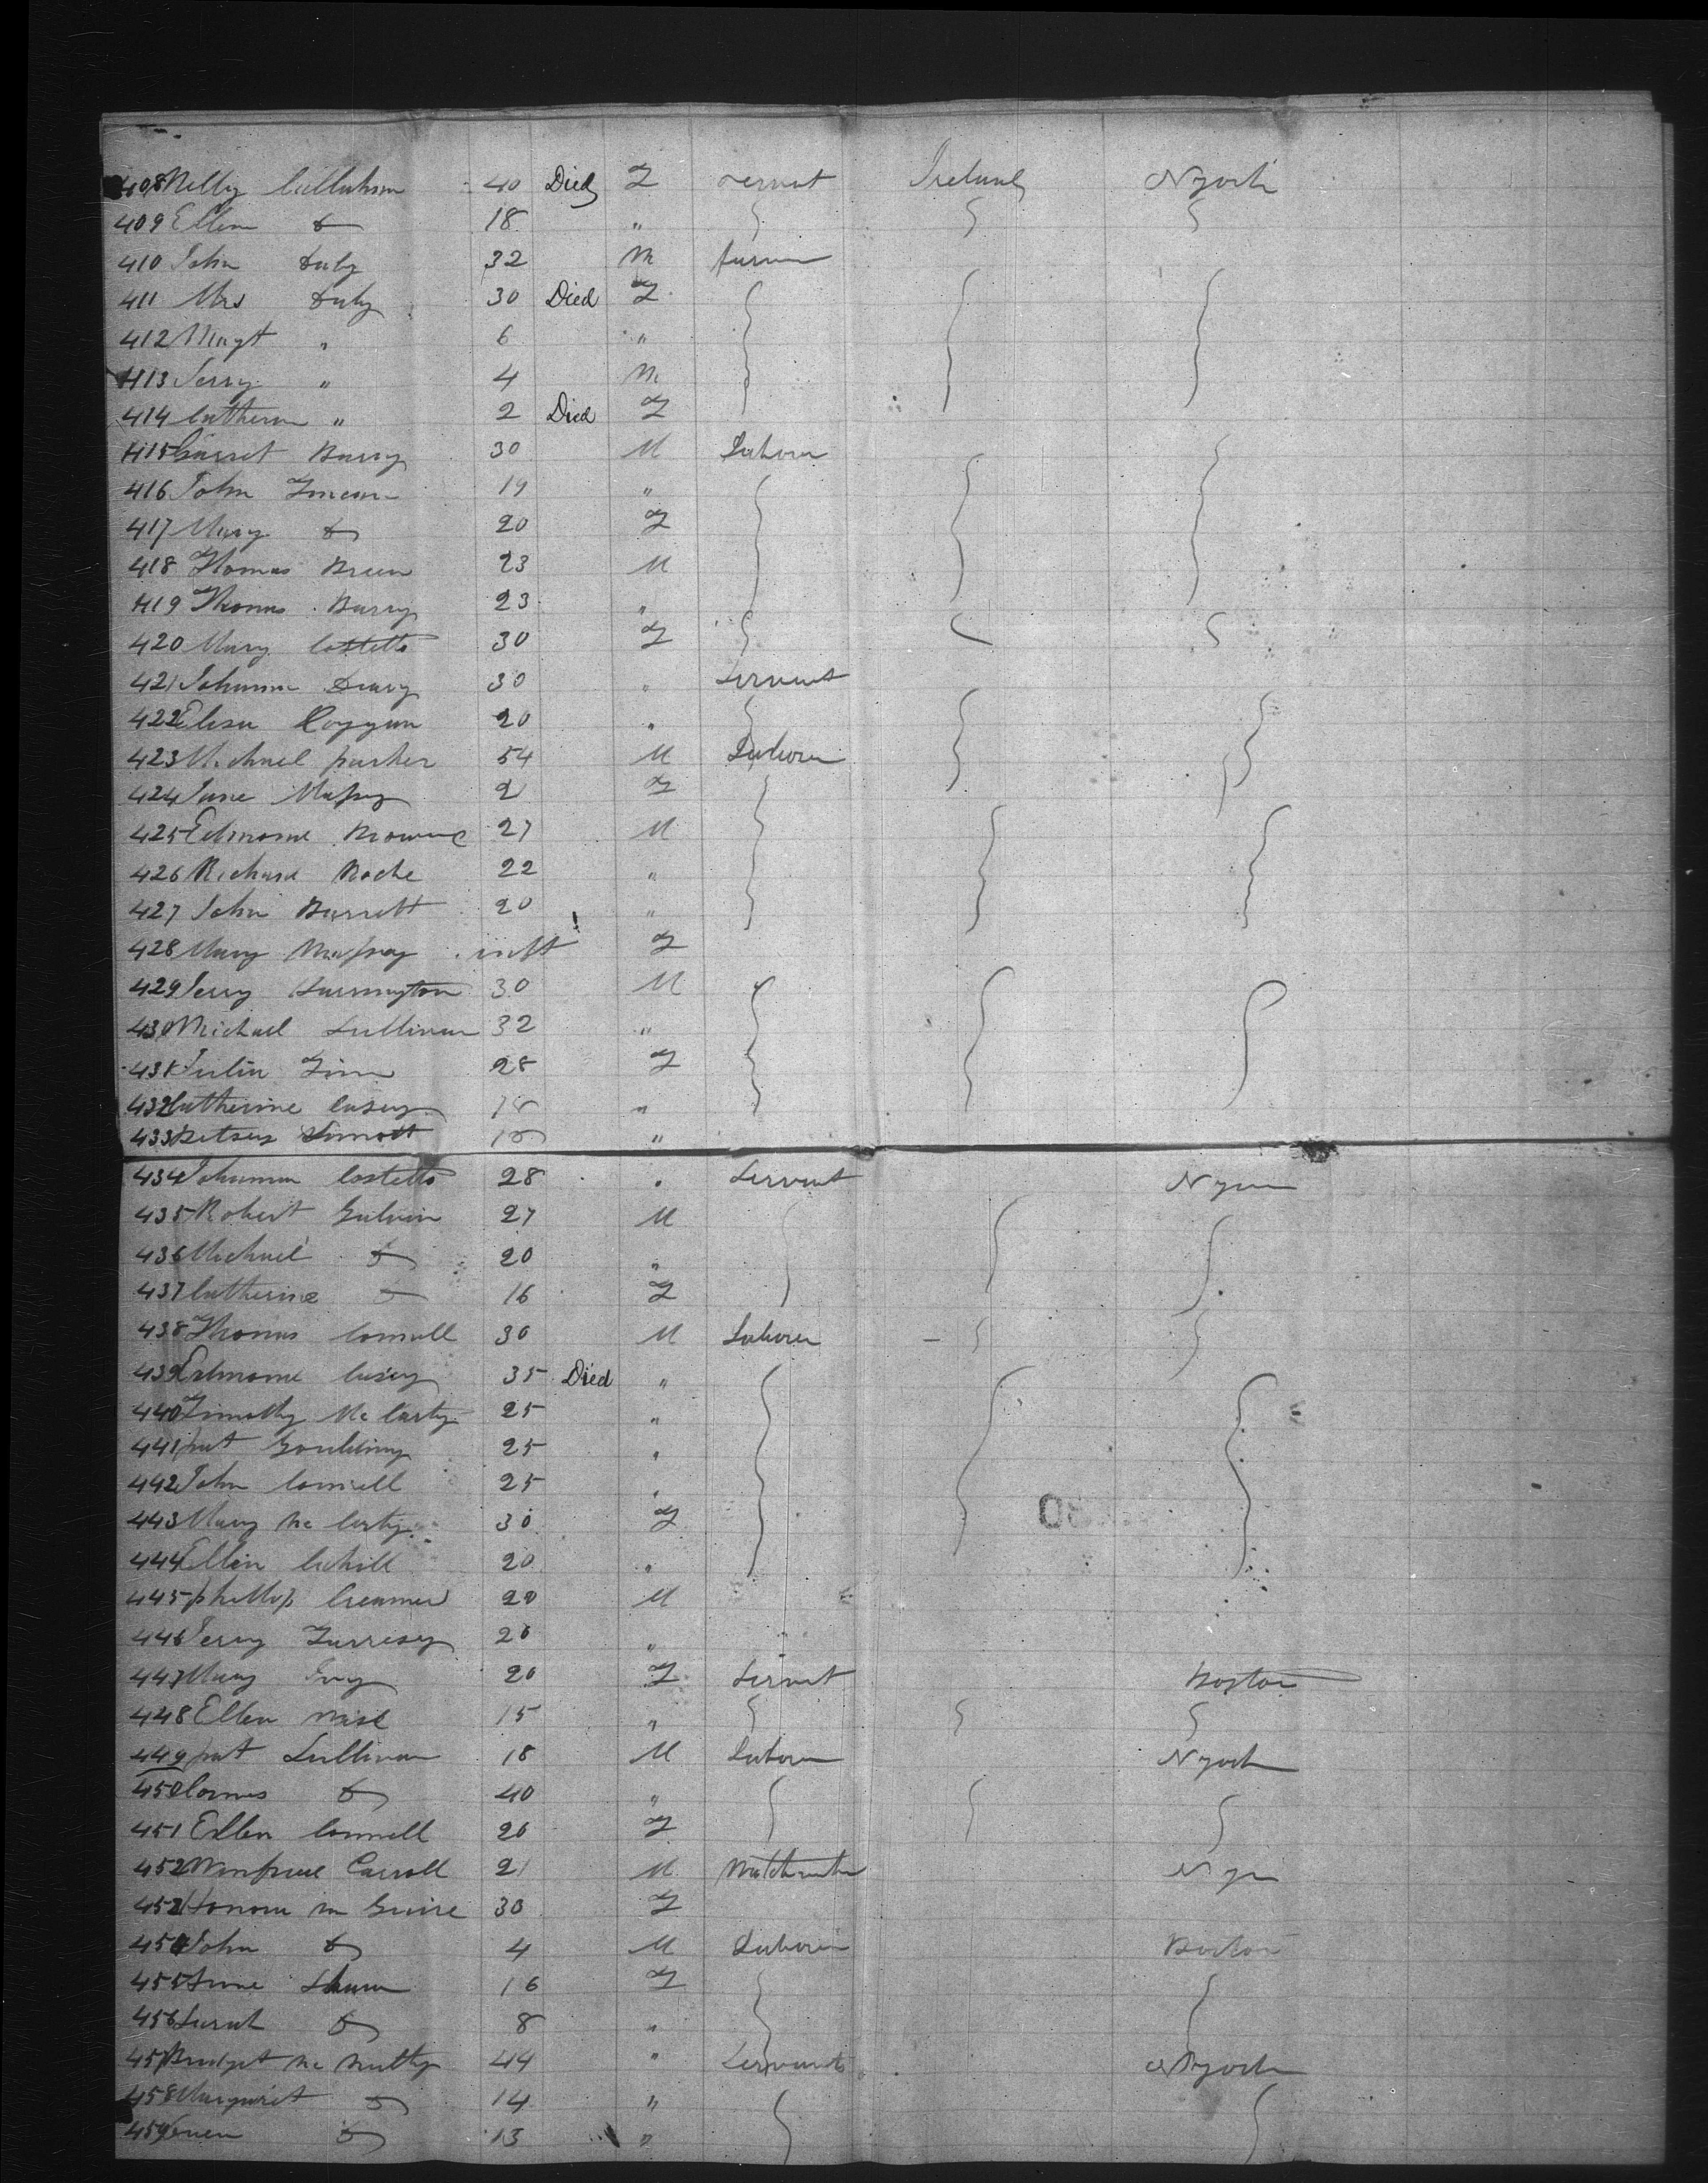 408 Nelly Callahan 40 Died F servnt Ireland NYork
409 Ellen do 18 "
410 John Daly 32 M farmer
411 Mrs Daly 30 Died F
412 Margt " 6 "
413 Jerry " 4 M
414 Catherin " 2 Died F
415 Garret Barry 30 M Laborer
416 John 19 "
417 Mary do 20 F
418 Thomas Breen 23 M
419 Thomas Barry 23 "
420 Mary Costello 30 F
421 Johanna 30 " Servant
422 Elisa Coggan 20 "
423 Michael parker 54 M Laborer
424 Jane 2 F
425 Edmond Browne 27 M
426 Richard Roche 22 "
427 John Barrett 20 "
428 Mary inft F
429 Jerry Harrington 30 M
430 Michael Sullivan 32 "
431 Julia Finn 28 F
432 Catherine Casey "
433 Betsey Sinnott "
434 Johanna Costello 28 " Servant
435 Robert Galvin 27 M
436 Michael do 20 "
437 Catherine do 16 F
438 Thomas Connell 30 M Laborer
439 Edmond Casey 35 Died "
440 Timothy Mc Carty 25 "
441 pat Goulding 25 "
442 John Connell 25 "
443 Mary Mc Carty 30 F
444 Ellen Cahill 20 "
445 phillip Creamer 20 M
446 Jerry 20 "
447 Mary 20 F Servnt Boston
448 Ellen 15 "
449 pat Sullivan 18 M Laborer NYork
450 do 40 "
451 Ellen Connell 20 F
452 Carroll 21 M
453 Honora Mc Guire 30 F
454 John do 4 M Laborer Boston
455 16 F
456 Sarah do 8 "
457 Bridget Mc Nulty 44 " Servant NYork
458 Margaret do 14 "
459 do 13 "